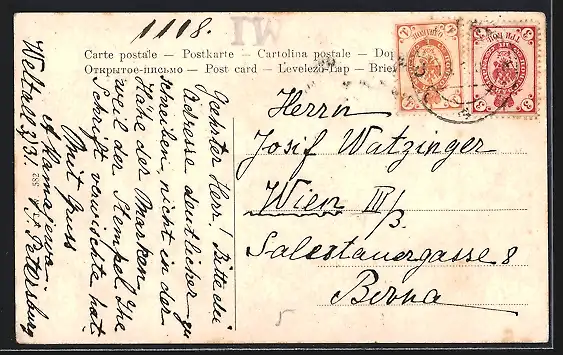 1118.
Carte postale — Postkarte — Cartolina postale — Dop
Открытое письмо — Post card — Levelező-Lap — Brief
Herrn
Josif Watzinger
Wien III/3.
Salestauergasse 8
Geehrter Herr! Bitte die
Adresse deutlicher zu
schreiben, nicht in der
Nähe der Marken,
weil der Stempel Ihre
Schrift verwischte hat
Mit Gruss
St. Petersburg
582
5